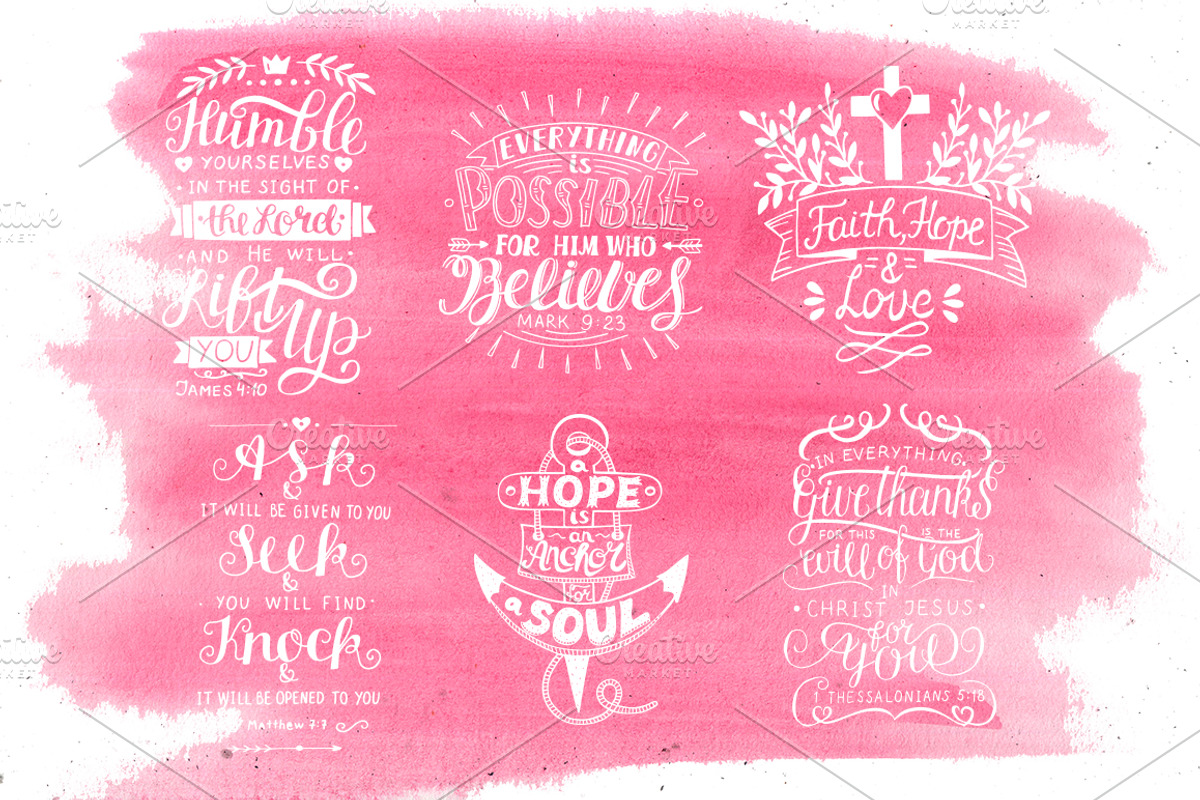 Humble
YOURSELVES
IN THE SIGHT OF
the Lord
AND HE WILL
Lift
YOU
Up
JAMES 4:10
EVERYTHING
is
POSSIBLE
FOR HIM WHO
Believes
MARK 9:23
Faith, Hope
&
Love
Ask
&
IT WILL BE GIVEN TO YOU
Seek
&
YOU WILL FIND
Knock
&
IT WILL BE OPENED TO YOU
Matthew 7:7
a
HOPE
is
an
Anchor
for
a SOUL
IN EVERYTHING,
Give thanks
FOR THIS IS THE
will of God
IN
CHRIST JESUS
for
you
1 THESSALONIANS 5:18
Creative
MARKET
Creative
MARKET
Creative
MARKET
Creative
MARKET
Creative
MARKET
Creative
MARKET